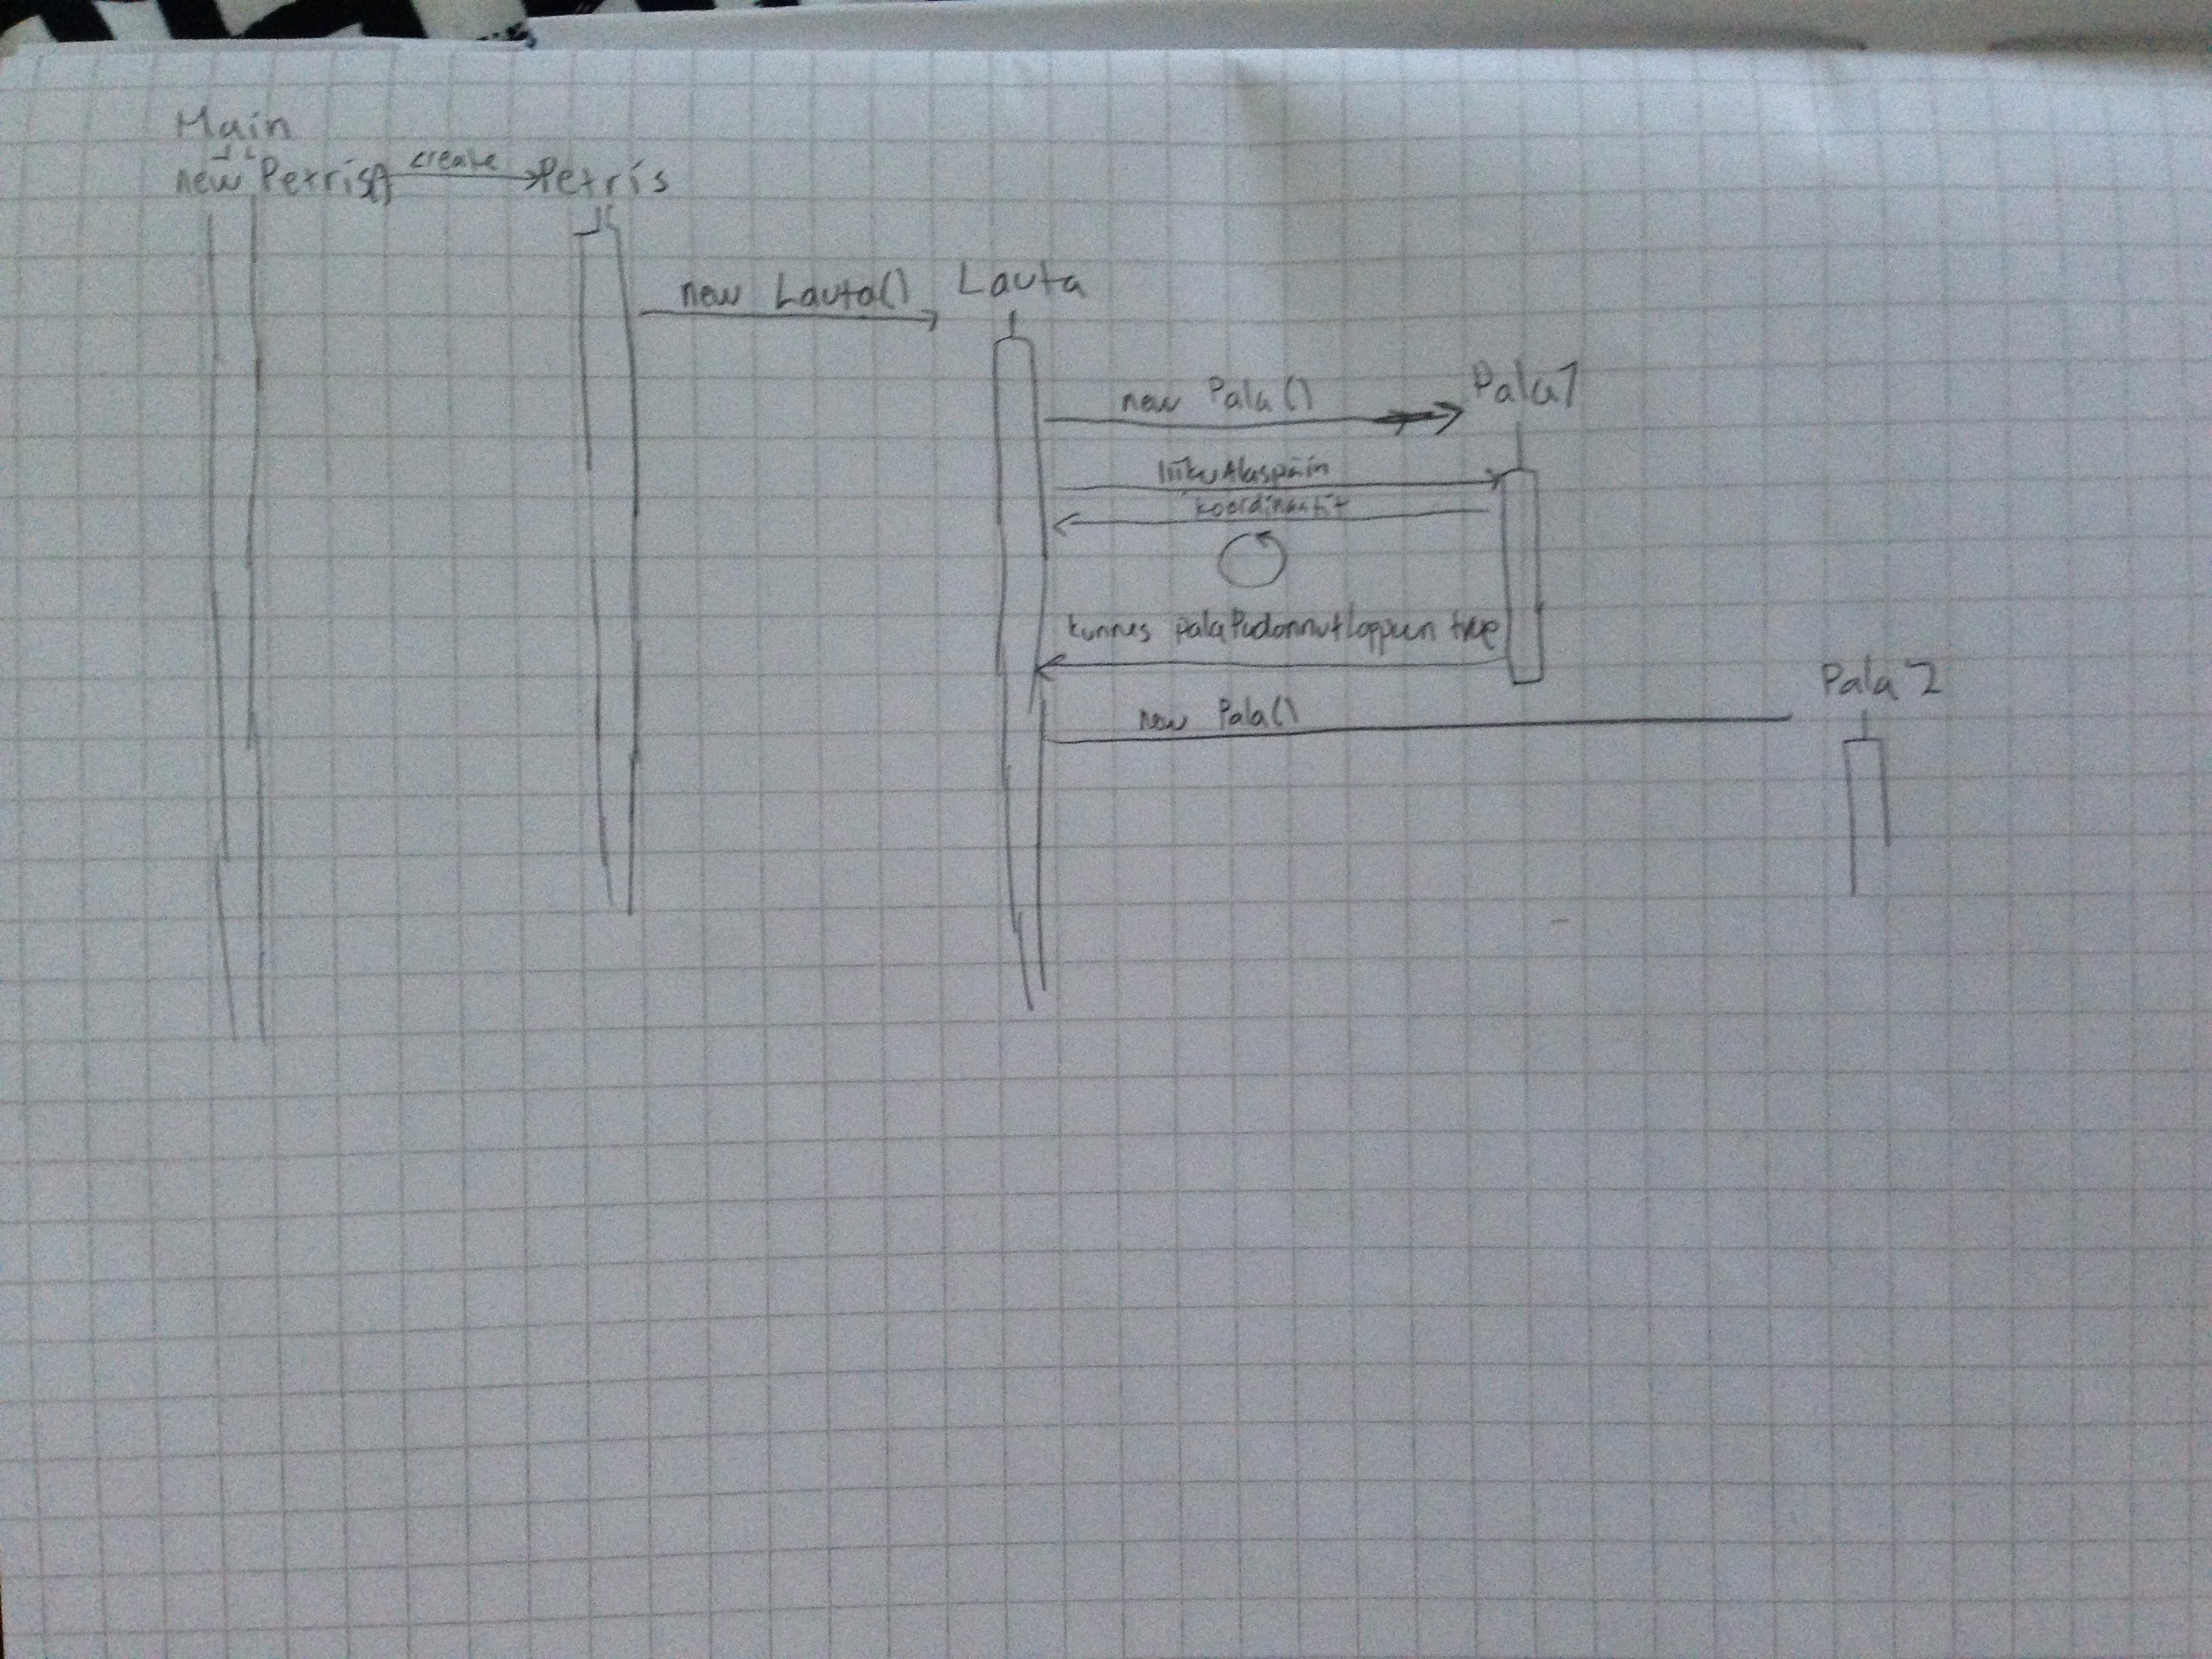 Main
new Petris() create Petris
new Lauta() Lauta
new Pala() Pala1
liikuAlaspäin
koordinaatit
kunnes palaPudonnutLoppuun true
Pala 2
new Pala()